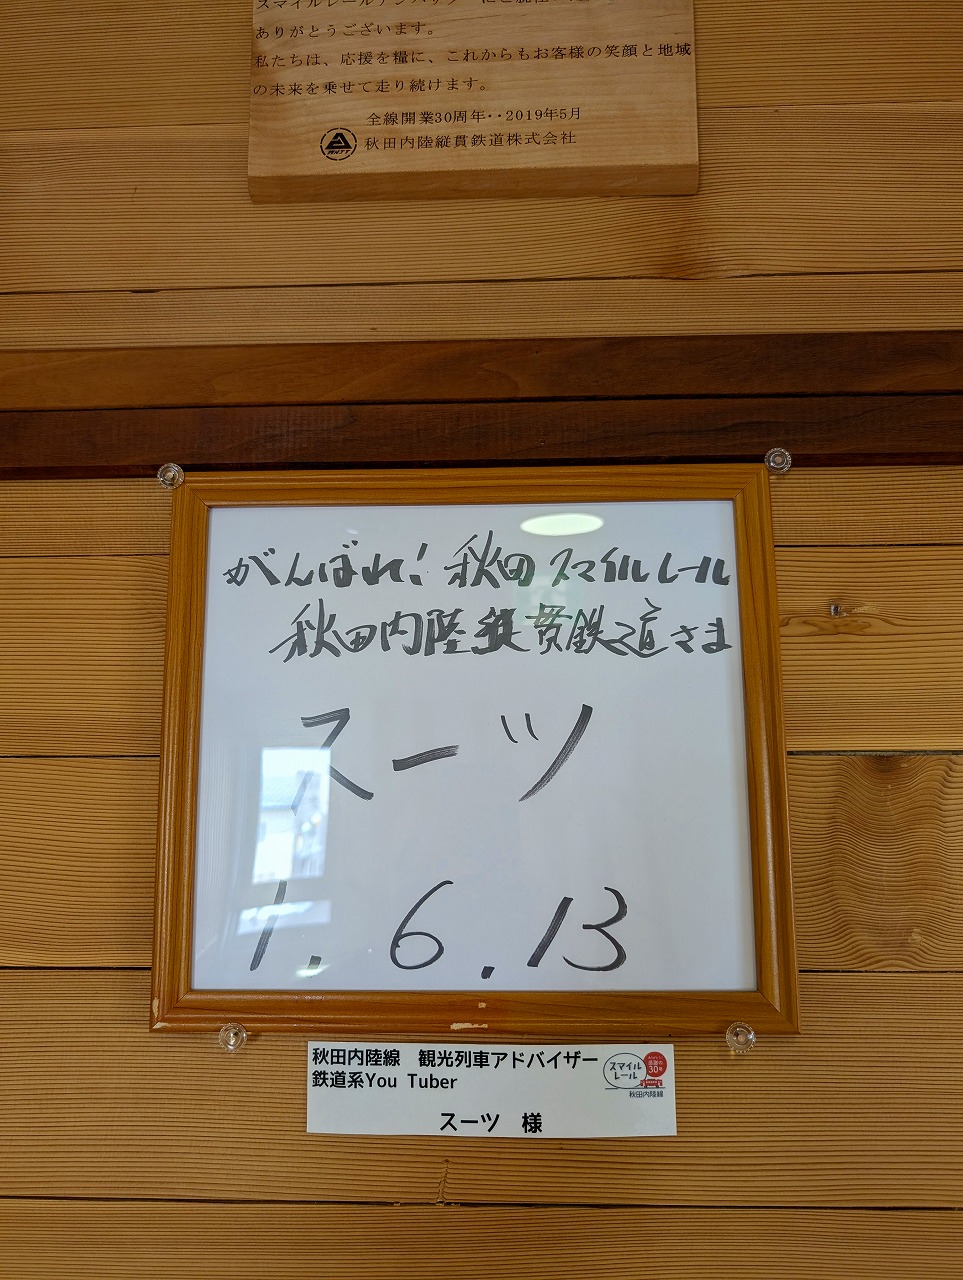 ありがとうございます。
私たちは、応援を糧に、これからもお客様の笑顔と地域
の未来を乗せて走り続けます。
全線開業30周年‥2019年5月
秋田内陸縦貫鉄道株式会社
がんばれ！秋田スマイルレール
秋田内陸縦貫鉄道さま
スーツ
1.6.13
秋田内陸線 観光列車アドバイザー
鉄道系You Tuber
スーツ 様
スマイル
レール
30年
秋田内陸線